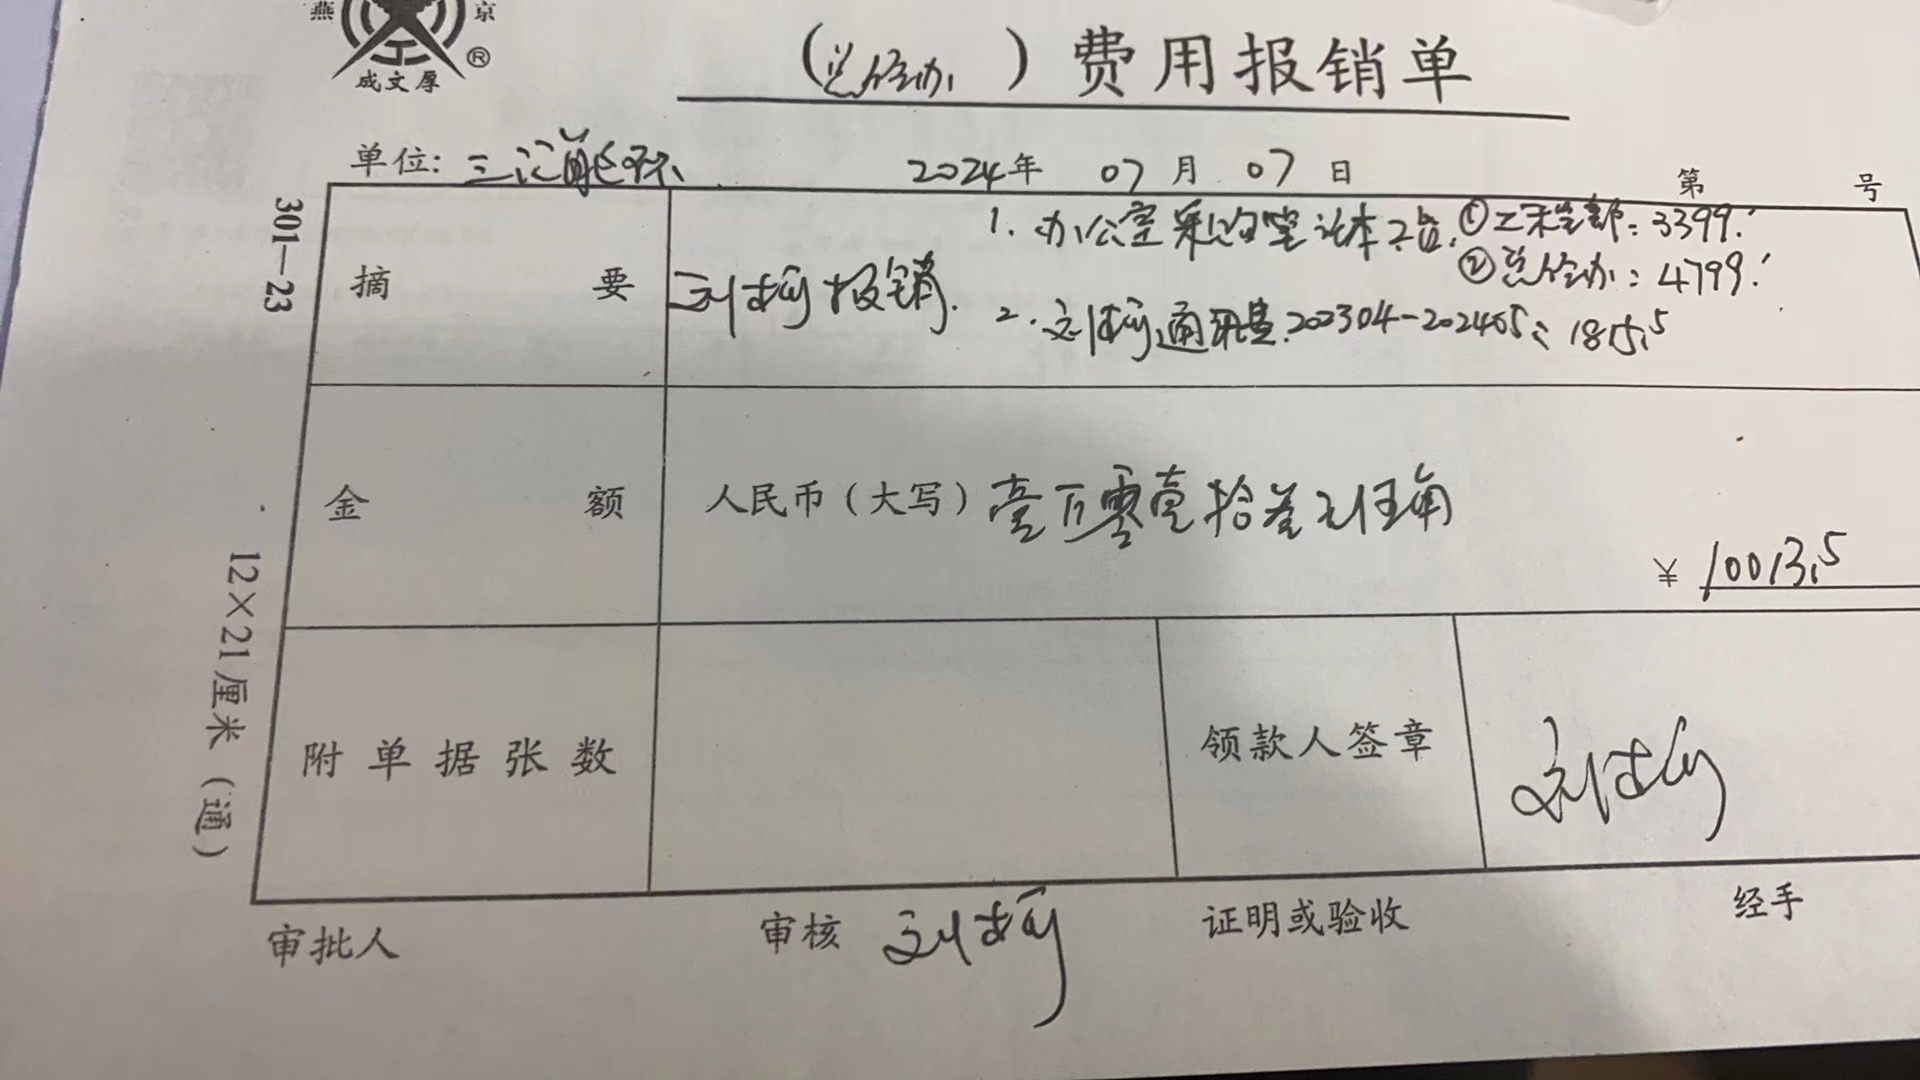 燕 京
成文厚 ®
(总经办) 费用报销单
单位: 三汇能环 2024年 07月 07日 第 号
301—23
12×21厘米(通)
摘 要
刘 报销.
1. 办公室采购笔记本2台. ①工程部: 3399.
②总经办: 4799.
2. 刘 通讯费. 202304-202405: 1815.5
金 额
人民币(大写) 壹万零壹拾叁元伍角
¥ 10013.5
附单据张数
领款人签章
审批人 审核 证明或验收 经手